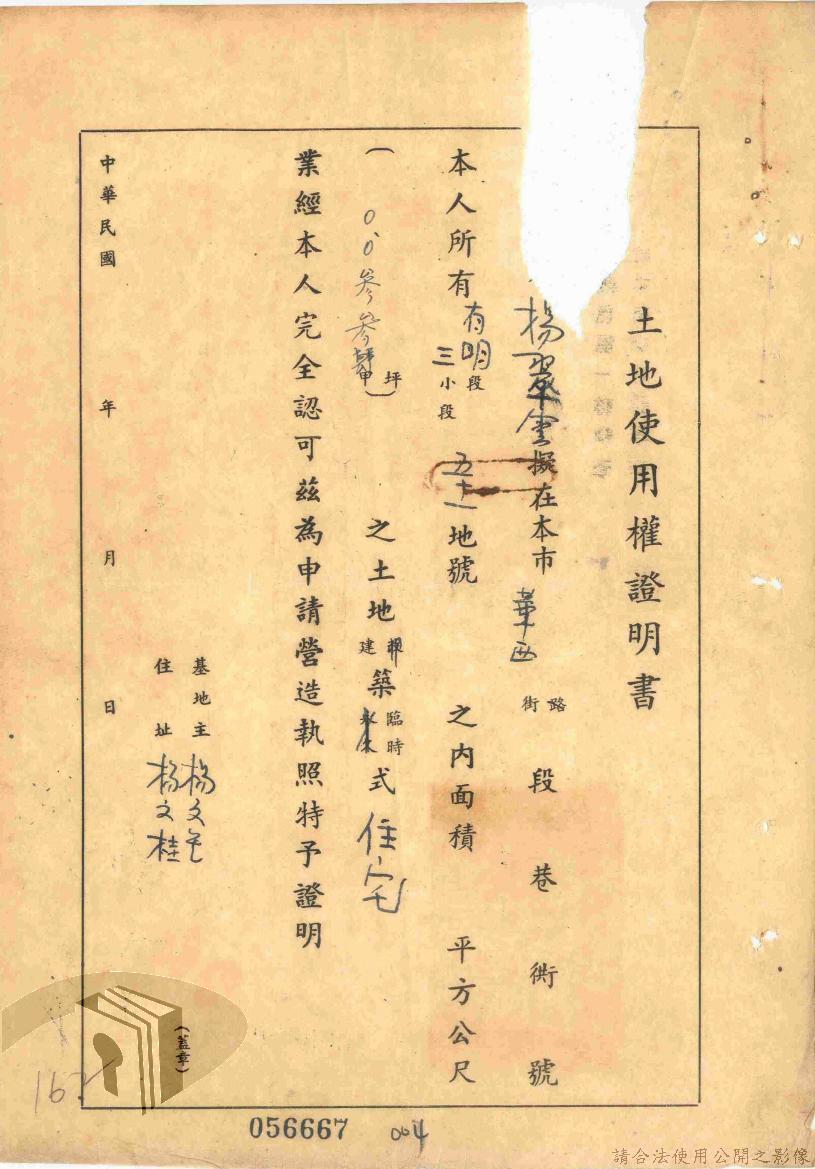 土地使用權證明書
楊翠雲擬在本市華西路街段巷衖號
本人所有有明段三小段五十一地號之內面積平方公尺
(0.0參參肆坪甲)之土地建築臨時永久式住宅
業經本人完全認可茲為申請營造執照特予證明
基地主楊文
住址楊文桂
(蓋章)
中華民國年月日
056667
004
162
請合法使用公開之影像